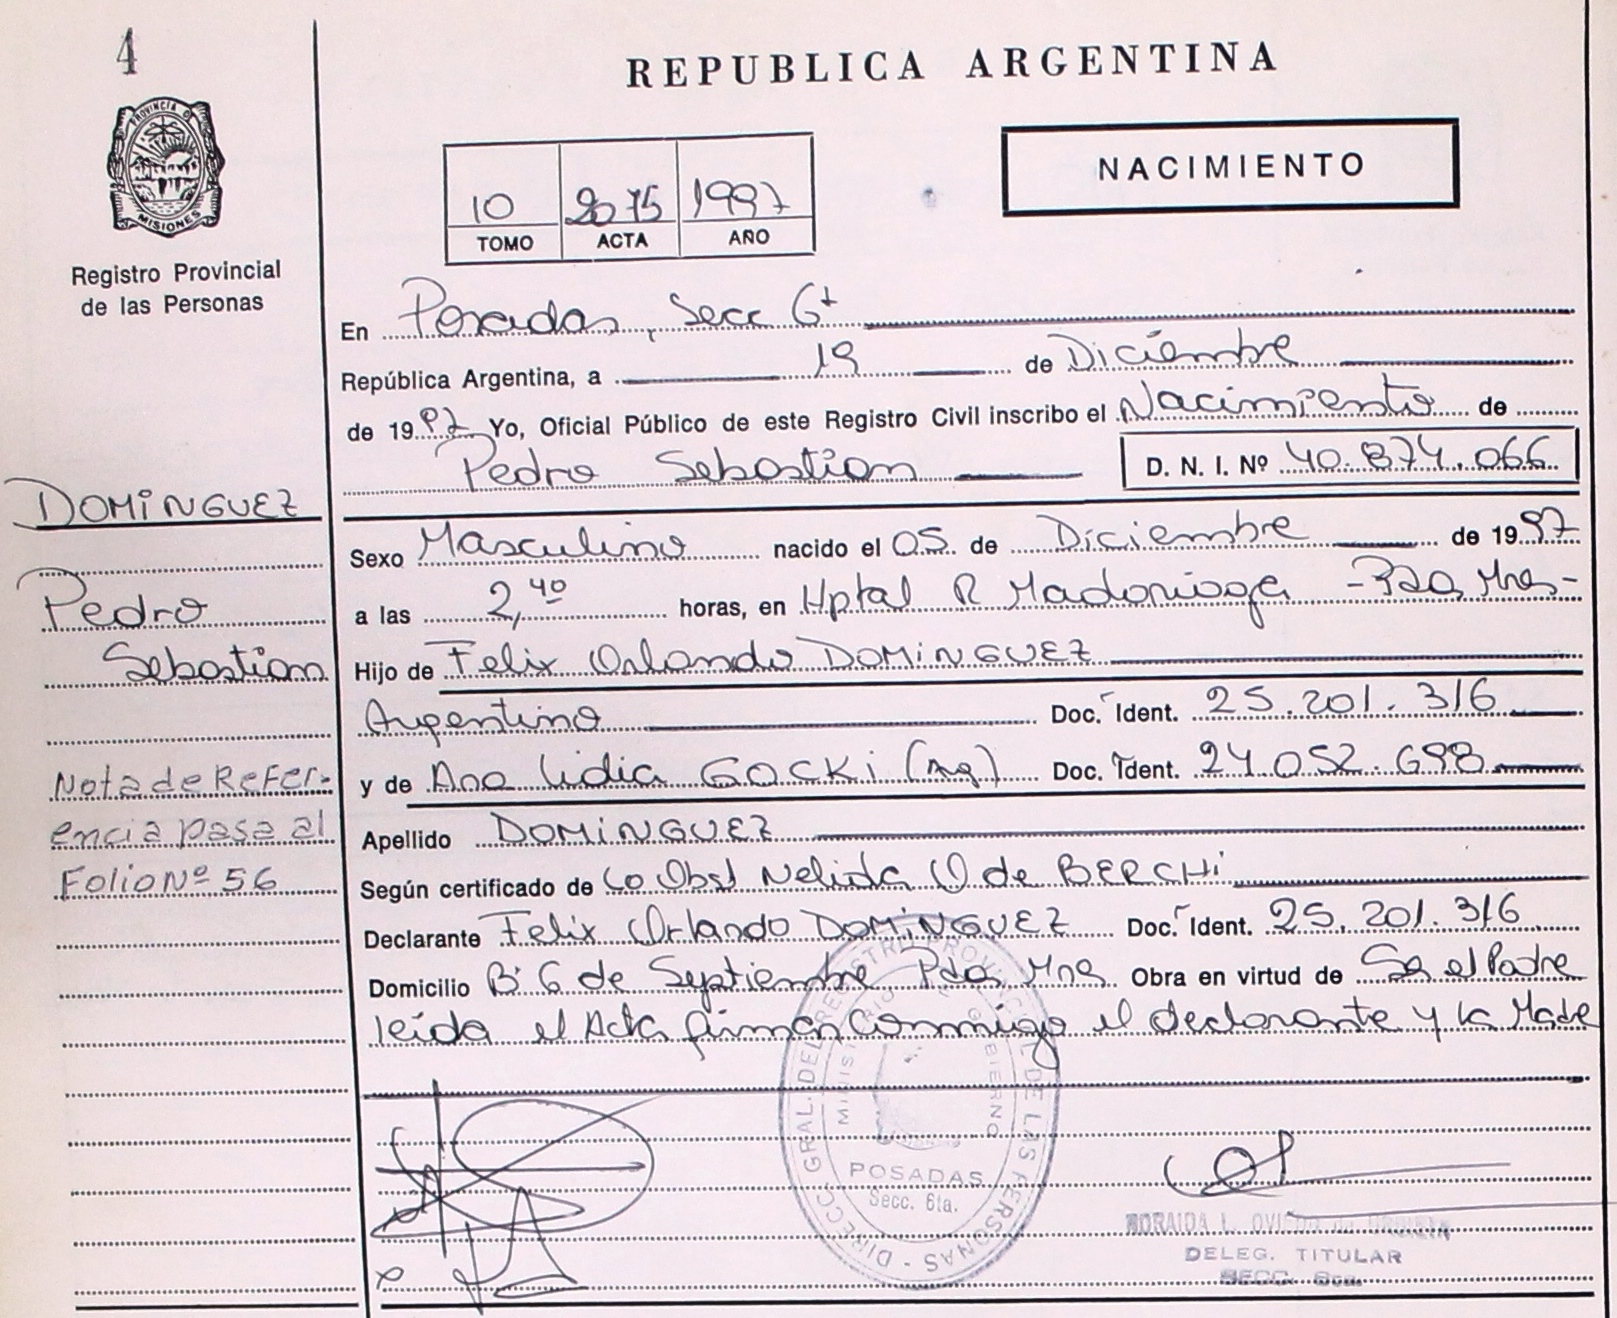 4
PROVINCIA D
MISIONES
Registro Provincial
de las Personas
REPUBLICA ARGENTINA
10 2075 1997
TOMO ACTA AÑO
NACIMIENTO
En Posadas, Secc 6ta
República Argentina, a 19 de Diciembre
de 1997 Yo, Oficial Público de este Registro Civil inscribo el Nacimiento de
Pedro Sebastian D. N. I. Nº 40.874.066
DOMINGUEZ
Pedro
Sebastian
Nota de Refer-
encia pasa al
Folio Nº 56
Sexo Masculino nacido el 05 de Diciembre de 1997
a las 2,40 horas, en Hptal R Madariaga - Pdas Mnes -
Hijo de Felix Orlando DOMINGUEZ
Argentino Doc. Ident. 25.201.316
y de Ana Lidia GOCKI (Arg) Doc. Ident. 24.052.698
Apellido DOMINGUEZ
Según certificado de La Obst Nelida O de BERCHI
Declarante Felix Orlando DOMINGUEZ Doc. Ident. 25.201.316
Domicilio Bº 6 de Septiembre Pdas Mnes Obra en virtud de Ser el Padre
leída el Acta firman conmigo el declarante y la Madre
DIRECC. GRAL. DEL REGISTRO PROVINCIAL DE LAS PERSONAS -
MINISTERIO GOBIERNO
POSADAS
Secc. 6ta.
L. OVIEDO de
DELEG. TITULAR
SECC. 6ta.